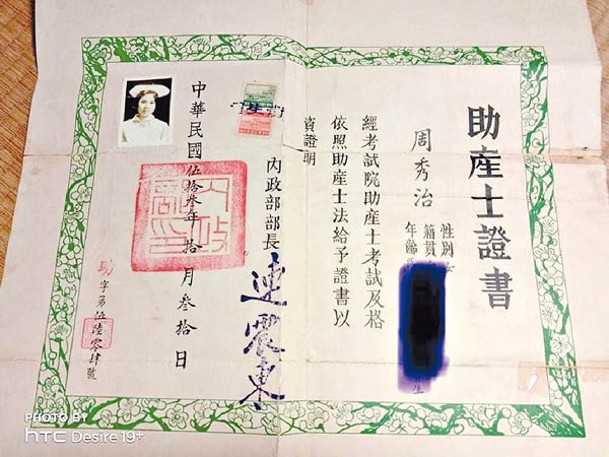 助產士證書
周秀治
性別女
籍貫
年齡
生
經考試院助產士考試及格
依照助產士法給予證書以
資證明
內政部部長
連震東
內政部印
中華民國伍拾叁年拾月叁拾日
助字第伍陸零肆號
PHOTO BY
hTC Desire 19+